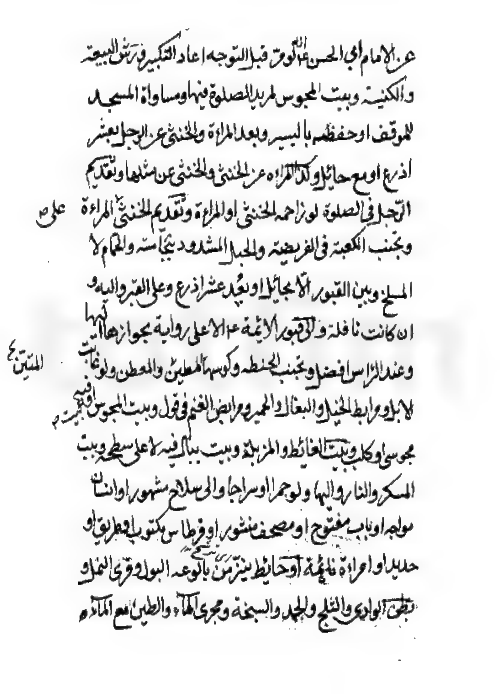 عن الامام ابي الحسن ع لو قبل التوجه اعاد التكبير ورش البيعة
والكنيسة وبيت المجوس لمريد الصلوة فيها ومساواة المسجد
للموقف او حفظه باليسير وبعد المراة والخنثى عن الرجل بعشر
اذرع او مع حائل وكذا المراة عن الخنثى والخنثى عن مثلها وتقديم
الرجل في الصلوة لو زاحمه الخنثى او المراة وتقديم الخنثى على المراة
وتجنب الكعبة في الفريضة والحبل المشدود بنجاسة والحمام لا
المسلخ وبين القبور الا بحائل او بعد عشر اذرع وعلى القبر واليه و
ان كانت نافلة والى قبور الائمة ع الا على رواية بجوازها اليها
وعند الراس افضل وتجنب الحنطة وكومها المطين والمعطن ولو غابت
الابل ومرابط الخيل والبغال والحمير ومرابض الغنم في قول وبيت المجوس او فيه
مجوسي او كلب وبيت الغائط والمزبلة وبيت يبال فيه لا على سطحه وبيت
المسكر والنار واليها ولو جمرا او سراجا والى سلاح مشهور او انسان
مواجه او باب مفتوح او مصحف منشور او قرطاس مكتوب او طريق او
حديد او امراة نائمة او حائط ينز من بالوعة البول وقرى النمل و
بطن الوادي والثلج والجمد والسبخة ومجرى الماء والطين مع الماء
المتين